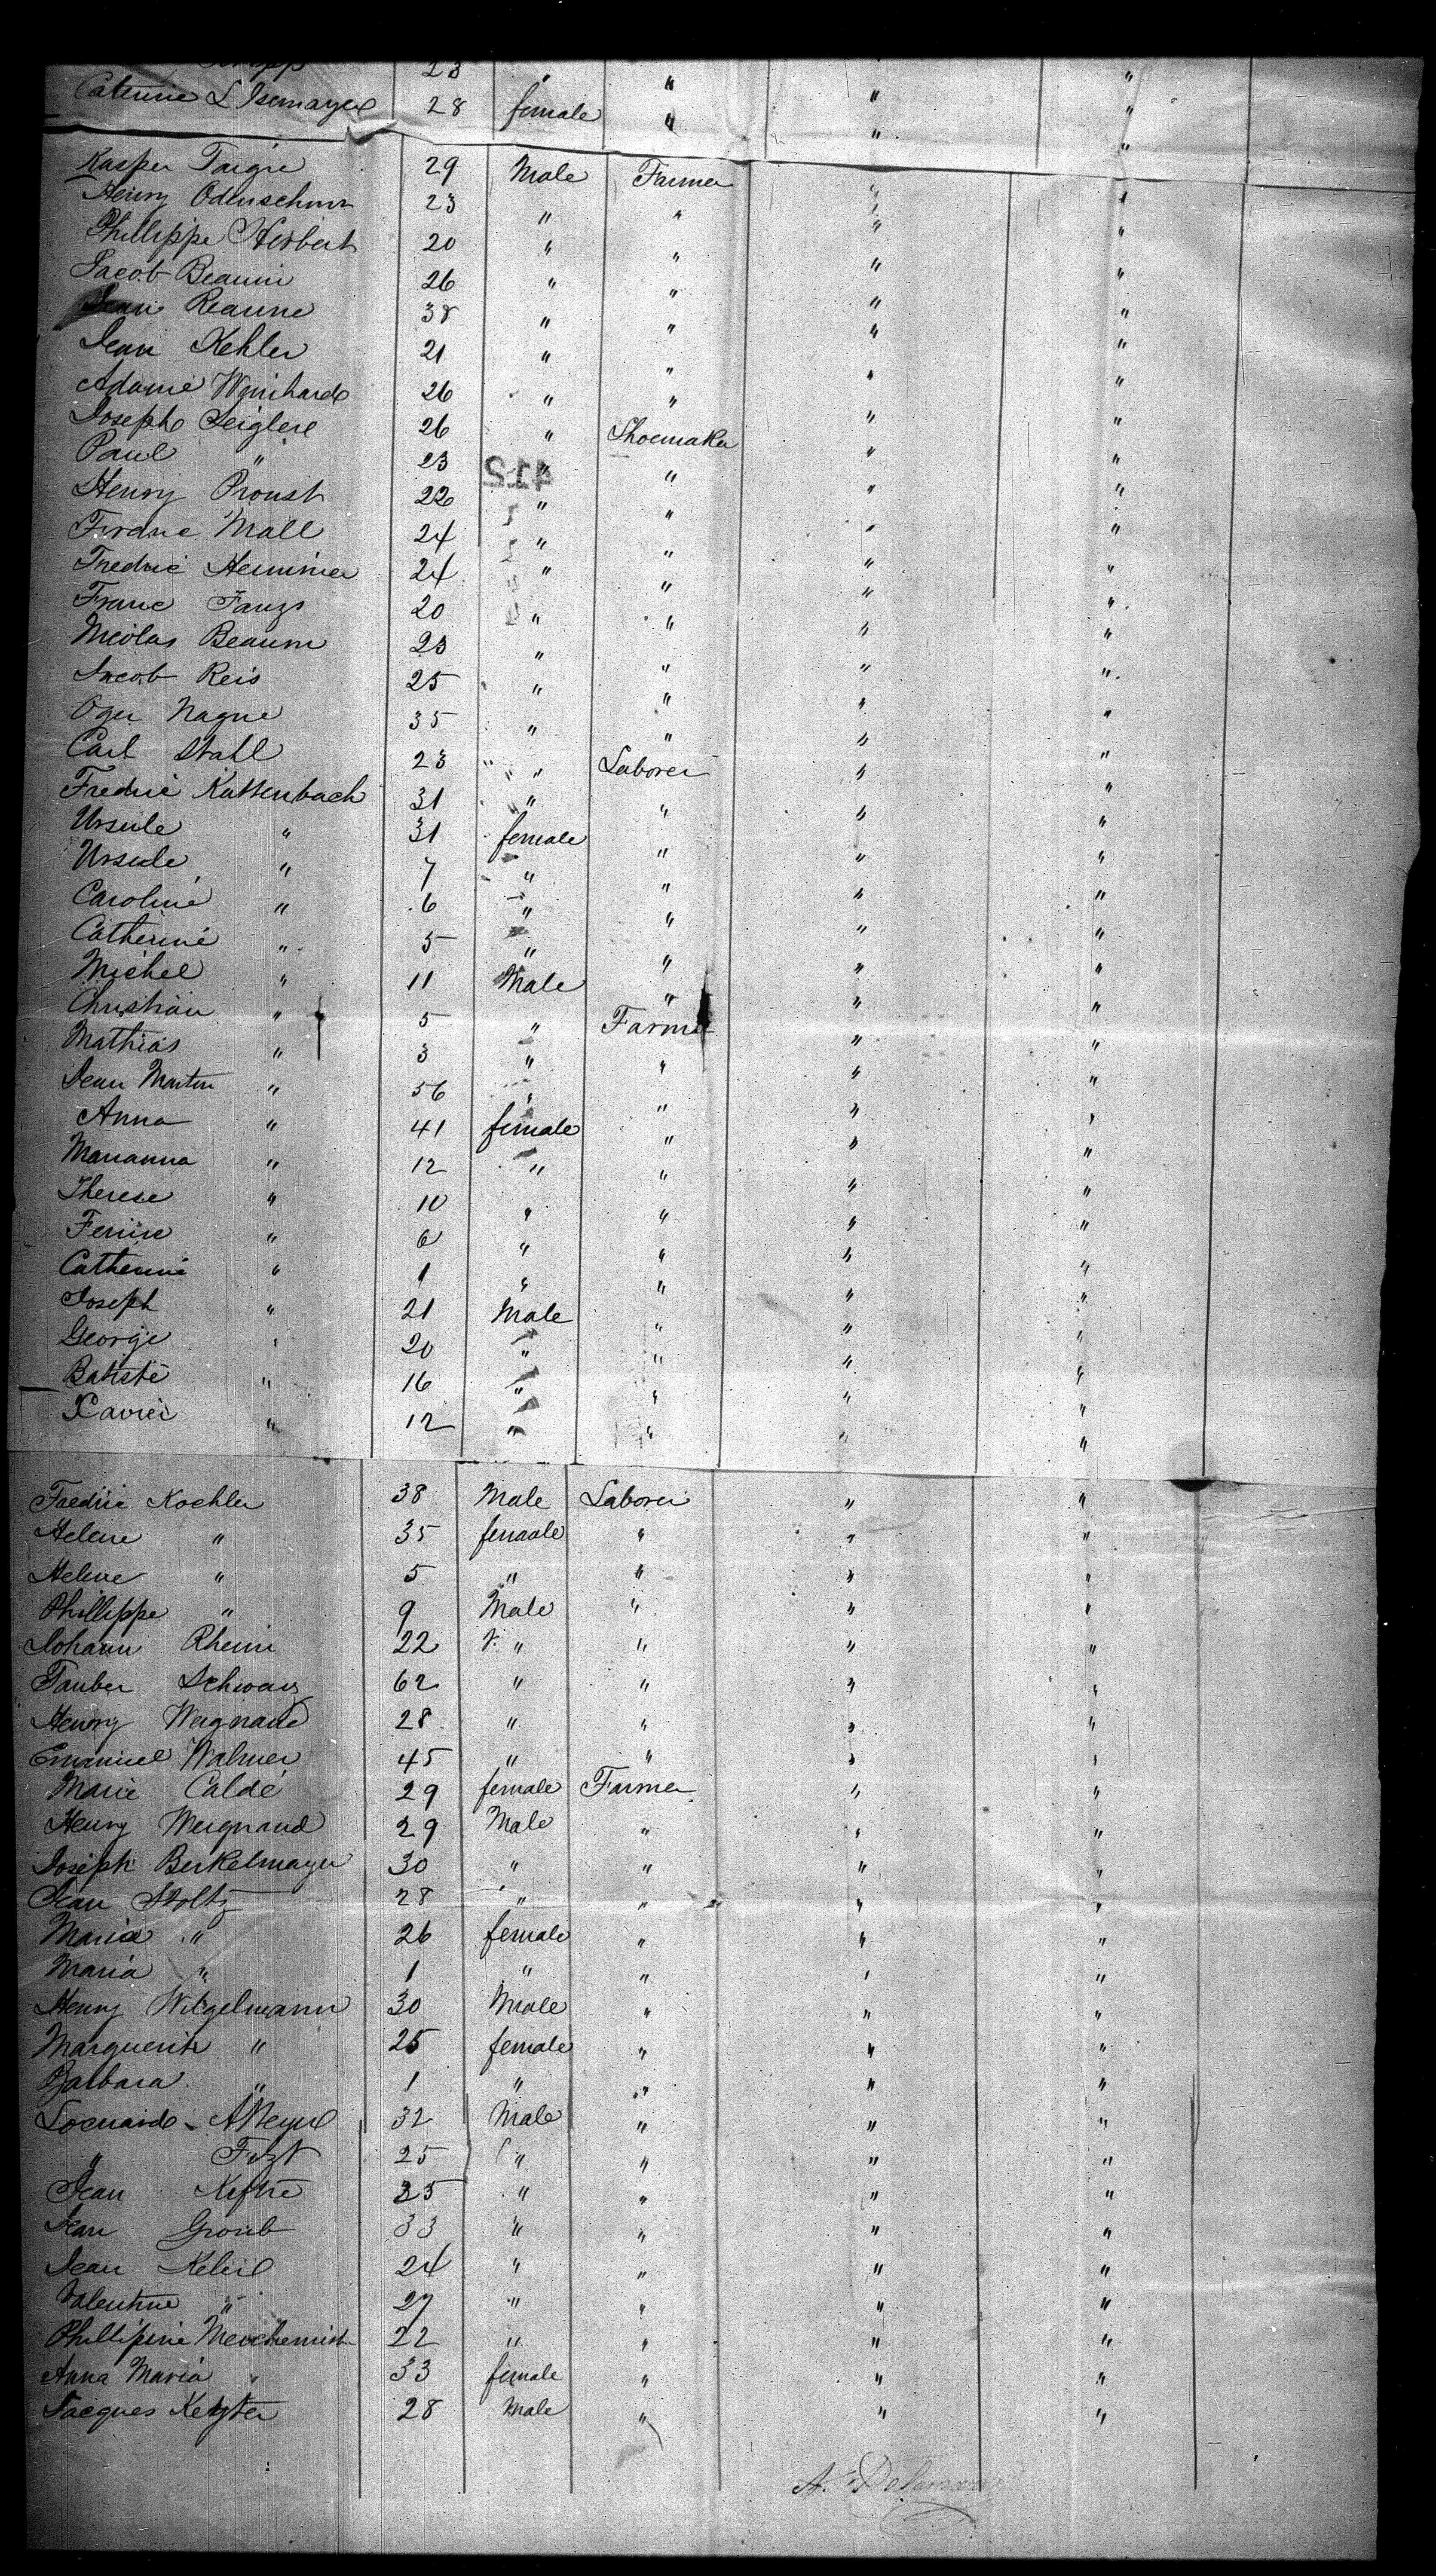 23 " " " "
Caterine L Isemayer 28 female " " "
Kasper Taigre 29 Male Farmer " "
Henry 23 " " " "
Phillippe Herbert 20 " " " "
Jacob Beaum 26 " " " "
Jean Reaume 38 " " " "
Jean Kehler 21 " " " "
Adame Weinhard 26 " " " "
Joseph Seiglere 26 " Shoemaker " "
Paul " 23 " " " "
Henry Proust 22 " " " "
Franc Mall 24 " " " "
Fredric Hemmer 24 " " " "
Franc Fangs 20 " " " "
Nicolas Beaum 23 " " " "
Jacob Reis 25 " " " "
Oger Nague 35 " " " "
Carl Stahl 23 " Laborer " "
Fredric Kattenbach 31 " " " "
Ursule " 31 female " " "
Ursule " 7 " " " "
Caroline " 6 " " " "
Catherine " 5 " " " "
Michel " 11 Male " " "
Christian " 5 " Farmer " "
Mathias " 3 " " " "
Jean Martin " 56 " " " "
Anna " 41 female " " "
Marianna " 12 " " " "
Therese " 10 " " " "
" 6 " " " "
Catherine " 1 " " " "
Joseph " 21 Male " " "
George " 20 " " " "
Batiste " 16 " " " "
Xavier " 12 " " " "
Fredric Koehler 38 Male Laborer " "
Helene " 35 female " " "
Helene " 5 " " " "
Phillippe " 9 Male " " "
Johann Rheim 22 " " " "
Tauber Schwarz 62 " " " "
Henry Weignand 28 " " " "
Emanuel Walmer 45 " " " "
Marie Caldé 29 female Farmer " "
Henry Weignand 29 Male " " "
Joseph Berkelmayer 30 " " " "
Jean Stoltz 28 " " " "
Maria " 26 female " " "
Maria " 1 " " " "
Henry Wilgelmann 30 Male " " "
Marguerite " 25 female " " "
Barbara " 1 " " " "
Loenard 32 Male " " "
" Fizt 25 " " " "
Jean Kefné 35 " " " "
Jean Groub 33 " " " "
Jean Keleil 24 " " " "
Valentine " 27 " " " "
Phillipine 22 " " " "
Anna Maria " 33 female " " "
Jacques Ketzter 28 Male " " "